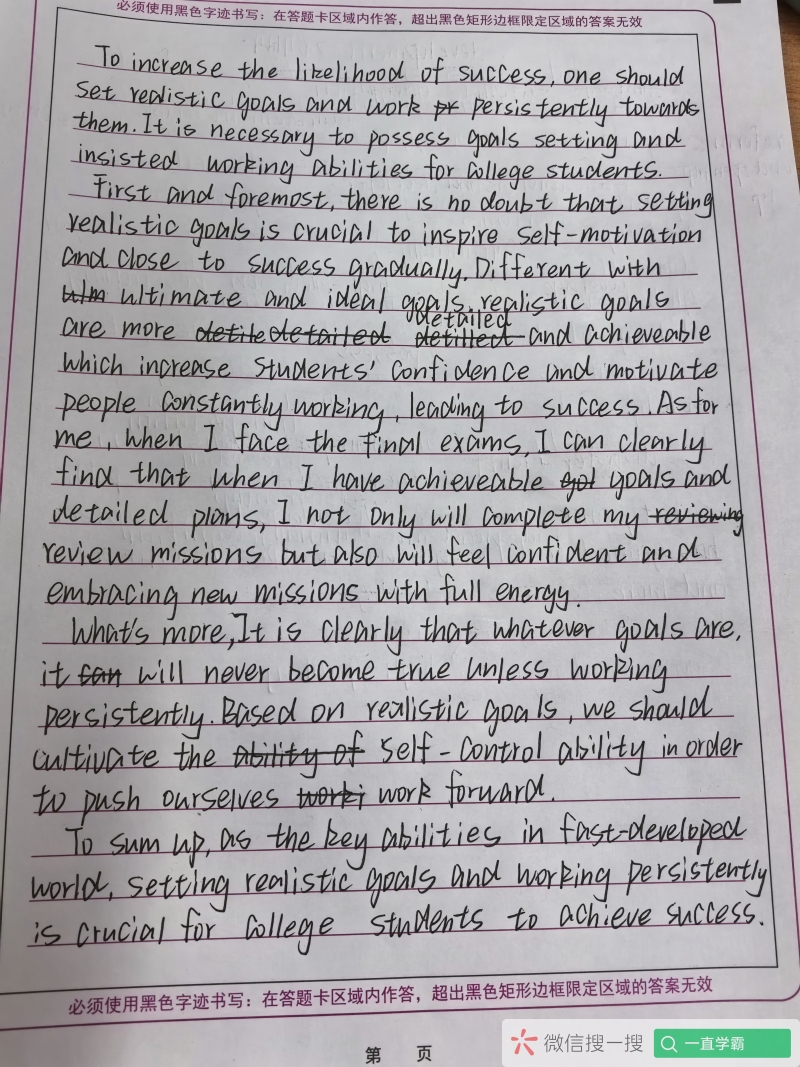 必须使用黑色字迹书写：在答题卡区域内作答，超出黑色矩形边框限定区域的答案无效
To increase the likelihood of success, one should
set realistic goals and work persistently towards
them. It is necessary to possess goals setting and
insisted working abilities for college students.
First and foremost, there is no doubt that setting
realistic goals is crucial to inspire self-motivation
and close to success gradually. Different with
ultimate and ideal goals, realistic goals
are more detailed and achieveable
which increase students' confidence and motivate
people constantly working, leading to success. As for
me, when I face the final exams, I can clearly
find that when I have achieveable goals and
detailed plans, I not only will complete my reviewing
review missions but also will feel confident and
embracing new missions with full energy.
What's more, It is clearly that whatever goals are,
it can will never become true unless working
persistently. Based on realistic goals, we should
cultivate the ability of self-control ability in order
to push ourselves work forward.
To sum up, as the key abilities in fast-developed
world, setting realistic goals and working persistently
is crucial for college students to achieve success.
必须使用黑色字迹书写：在答题卡区域内作答，超出黑色矩形边框限定区域的答案无效
第 页
微信搜一搜 一直学霸